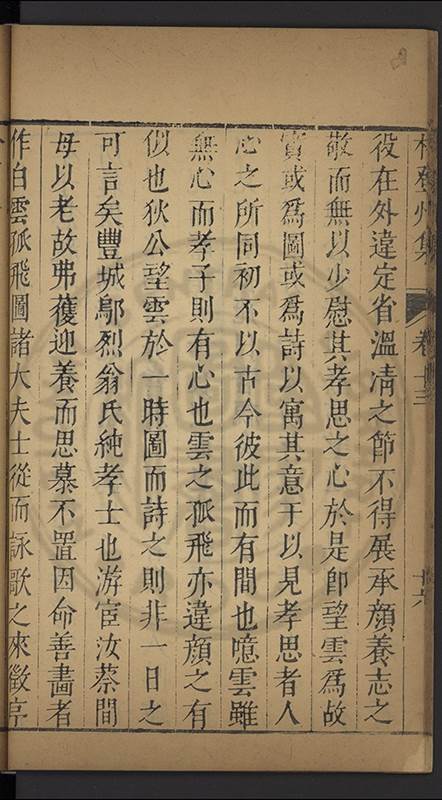 林登州集 卷十三 十六
役在外違定省溫凊之節不得展承顏養志之
敬而無以少慰其孝思之心於是卽望雲爲故
實或爲圖或爲詩以寓其意于以見孝思者人
心之所同初不以古今彼此而有間也噫雲雖
無心而孝子則有心也雲之孤飛亦違顏之有
似也狄公望雲於一時圖而詩之則非一日之
可言矣豐城鄔烈翁氏純孝士也游宦汝蔡間
母以老故弗獲迎養而思慕不置因命善畵者
作白雲孤飛圖諸大夫士從而詠歌之來徵序